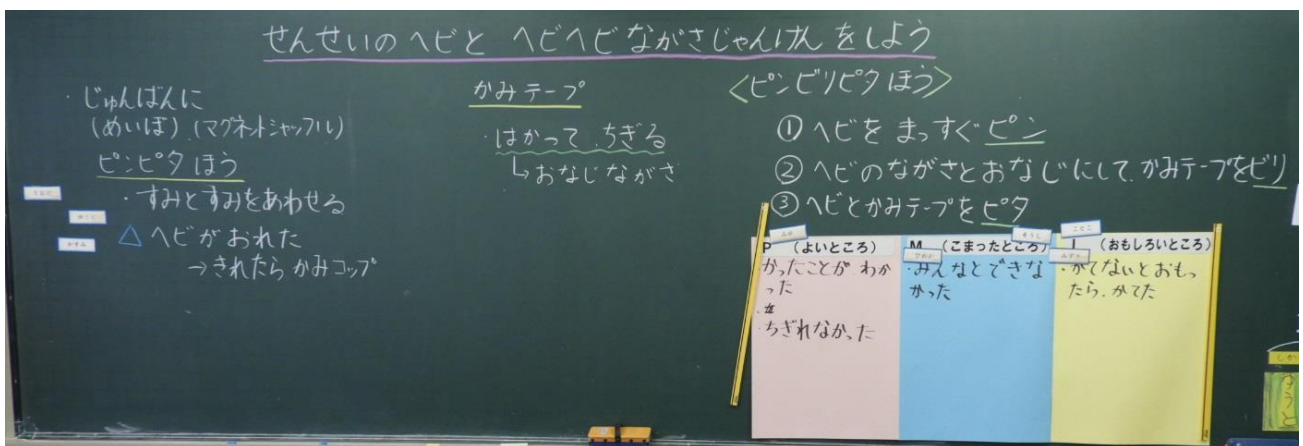 せんせいのヘビと ヘビヘビながさじゃんけんをしよう
・じゅんばんに
(めいぼ)(マグネットシャッフル)
ピンピタほう
・すみとすみをあわせる
△ ヘビがおれた
→きれたら かみコップ
かみテープ
・はかって、ちぎる
↳おなじながさ
<ピンビリピタほう>
① ヘビを まっすぐ ピン
② ヘビのながさとおなじにして、かみテープをビリ
③ ヘビとかみテープを ピタ
P (よいところ)
・かったことが わか
った
・ちぎれなかった
M (こまったところ)
・みんなとできな
かった
I (おもしろいところ)
・かてないとおもっ
たら、かてた